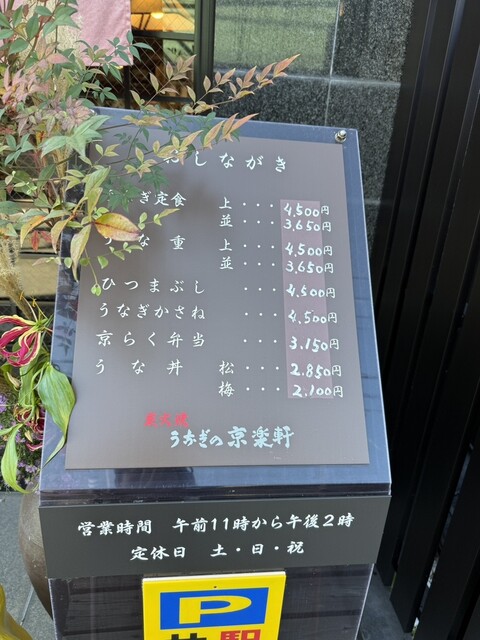 おしながき
ぎ定食 上・・・4,500円
並・・・3,650円
うな重 上・・・4,500円
並・・・3,650円
ひつまぶし ・・・4,500円
うなぎかさね ・・・4,500円
京らく弁当 ・・・3,150円
うな丼 松・・・2,850円
梅・・・2,100円
うなぎの京楽軒
営業時間 午前11時から午後2時
定休日 土・日・祝
P